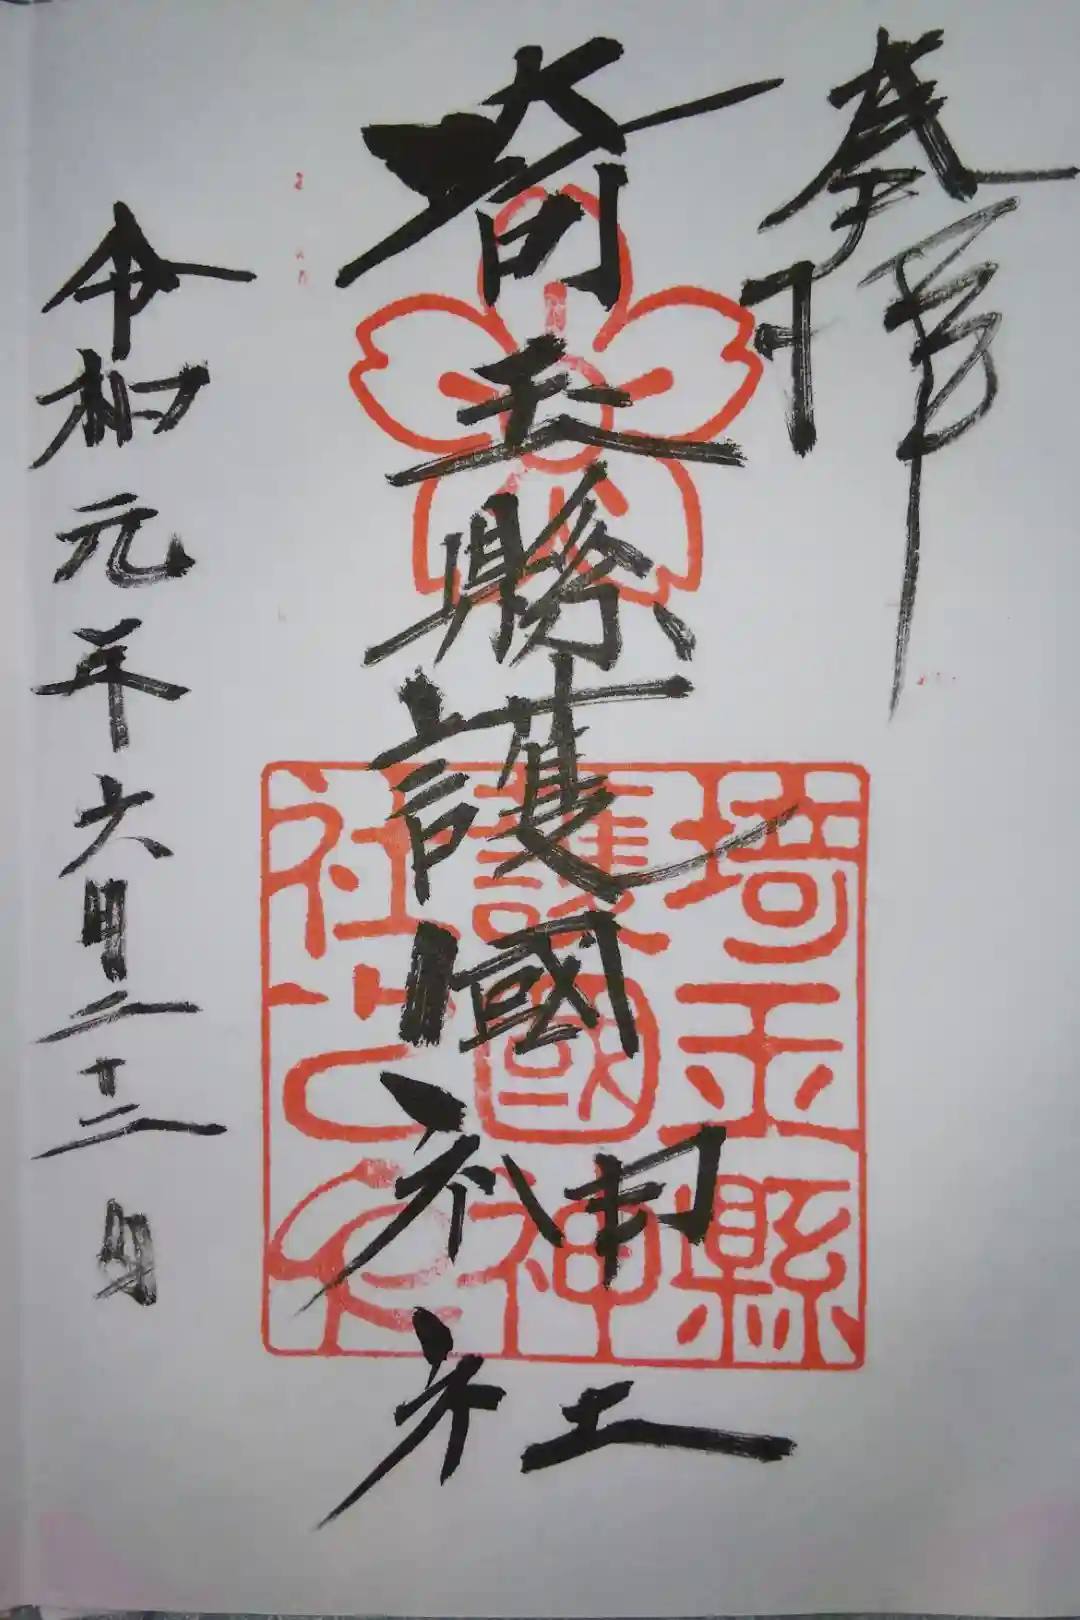 奉拝
埼玉縣護國神社
令和元年六月二十三日
埼玉縣
護國神
社之印